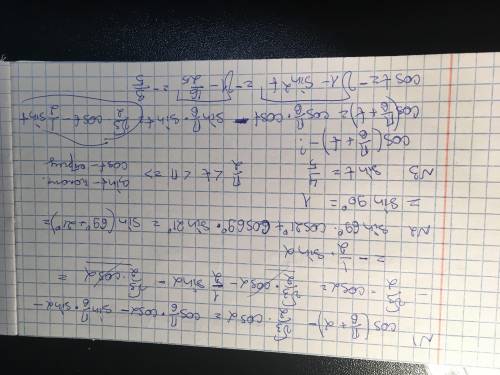 N1
cos(π/6 + α) − √3/2 · cosα = cos π/6 · cosα − sin π/6 · sinα −
− √3/2 · cosα = √3/2 cosα − 1/2 sinα − √3/2 cosα =
= − 1/2 · sinα
N2 sin69° · cos21° + cos69° · sin21° = sin(69° + 21°) =
= sin 90° = 1
N3 sint = 4/5 π/2 < t < π => sint - полож. cost - отриц
cos(π/6 + t) - ?
cos(π/6 + t) = cos π/6 · cost − sin π/6 · sint = √3/2 cost − 1/2 sint
cost = −√1 − sin²t = −√1 − 16/25 = − 3/5